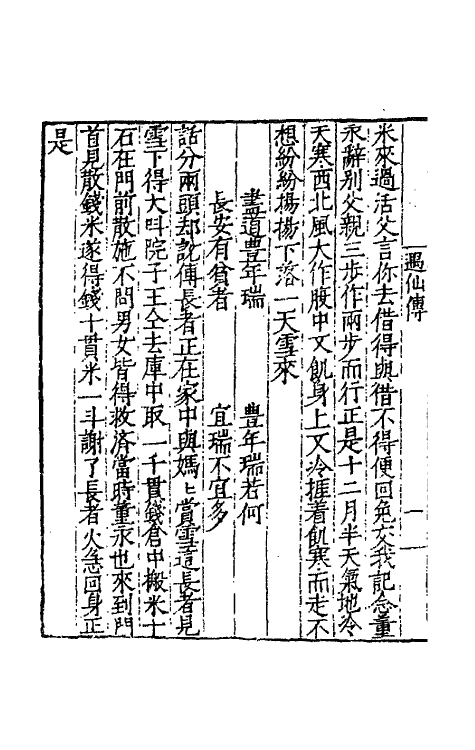 遇仙傳
一
米來過活父言你去借得與借不得便回免交我記念董
永辭别父親三步作兩步而行正是十二月半天氣地冷
天寒西北風大作股中又飢身上又冷捱着飢寒而走不
想紛紛揚揚下落一天雪來
盡道豊年瑞　豊年瑞若何
長安有貧者　宜瑞不宜多
話分兩頭却說傅長者正在家中與媽〻賞雪這長者見
雪下得大叫院子王仝去庫中取一千貫錢倉中搬米十
石在門前散施不問男女皆得救済當時董永也來到門
首見散錢米遂得錢十貫米一斗謝了長者火急回身正
是